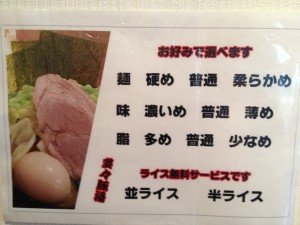 お好みで選べます
麺 硬め 普通 柔らかめ
味 濃いめ 普通 薄め
脂 多め 普通 少なめ
ライス無料サービスです
並ライス 半ライス